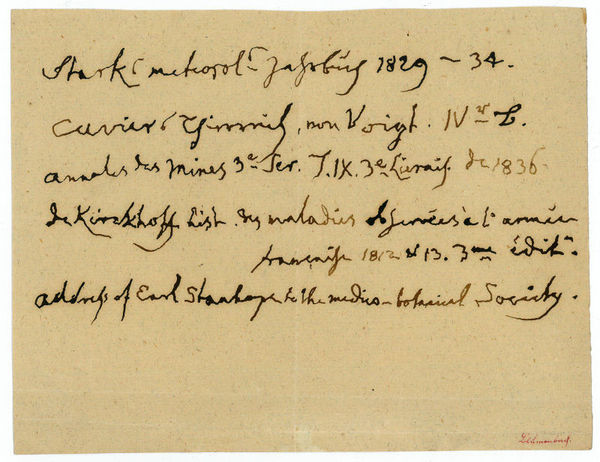 Starks meteorol. Jahrbüch 1829 – 34.
Cuviers Thierreich, von Voigt. IVr B.
annales des Mines 3e Ser. T.IX. 3e Livrais. de 1836.
de Kirckhoff hist. des maladies observées à l'armée
française 1812 et 13. 3me édit.
address of Earl Stanhope to the medico-botanical Society.